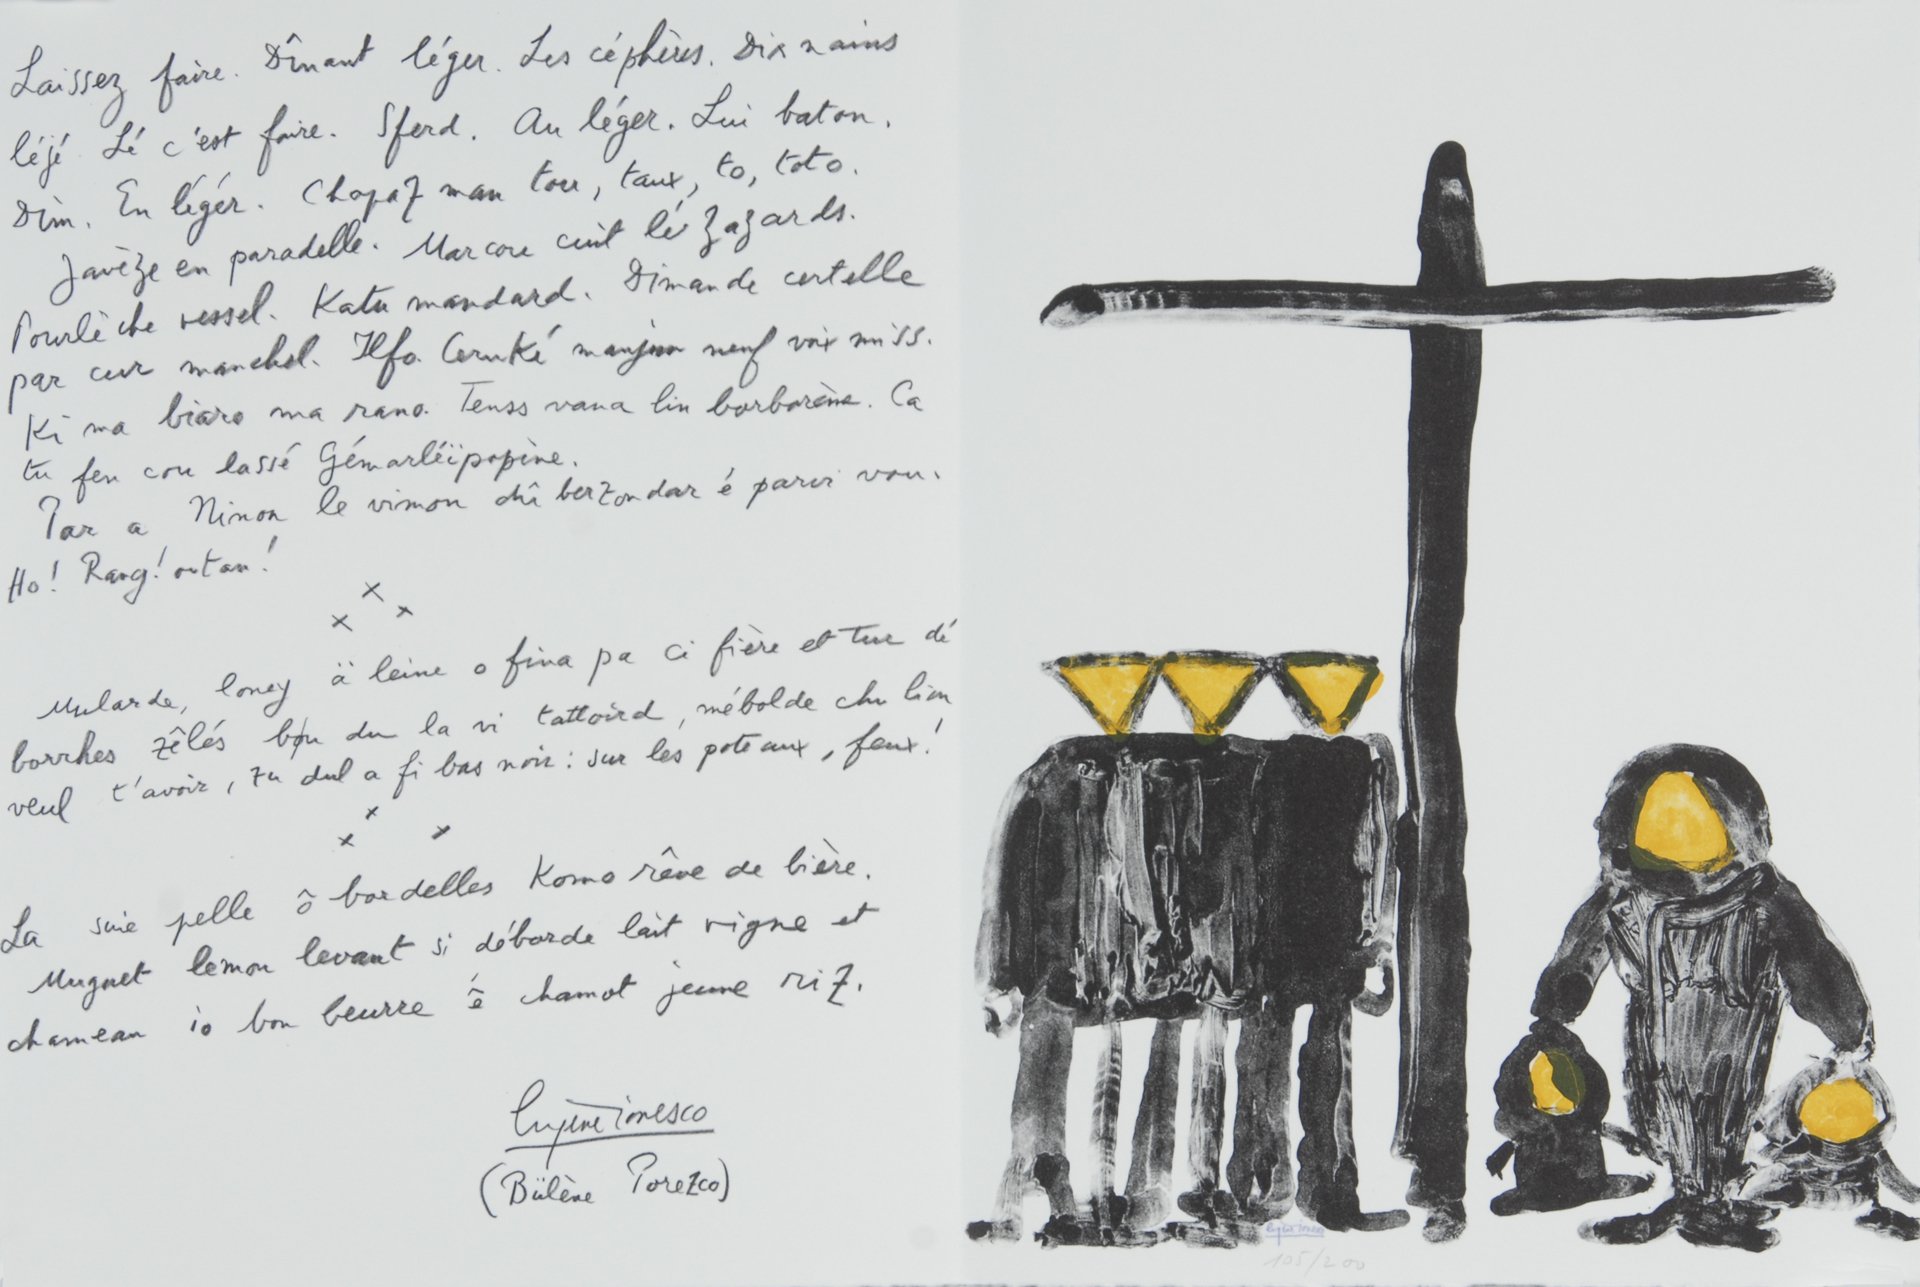 Laissez faire. Dînant léger. Les céphères. Dix nains
léjé. Lé c'est faire. Sferd. Au léger. Lui baton.
Dim. En léger. Chapaz man tou, taux, to, toto.
Javèze en paradelle. Marcou cuit lé zazards.
Pourlèche vessel. Katu mandard. Dimande certelle
par cur manchel. Ilfo Ceruké neuf voix miss.
Ki ma biaro ma rano. Tenss vana lin borborène. Ca
tu fen cou lassé Gémarléïpopine.
Par a Ninon le vimon dû berzondar é parvi vou.
Ho! Rang! outan!
Mularde, loney ä leine o fina pa ci fière et Tur dé
borches zêlés bou du la vi tattoird, mébolde chu lion
veul t'avoir, tu dul a fi bas noir: sur les poteaux, feux!
La suie pelle ô bordelles Komo rêve de bière.
Muguet lemou levant si déborde lait vigne et
chameau io bon beurre ê chamot jeune riz.
Eugène Ionesco
(Bülène Porezco)
Eugène Ionesco
105/200